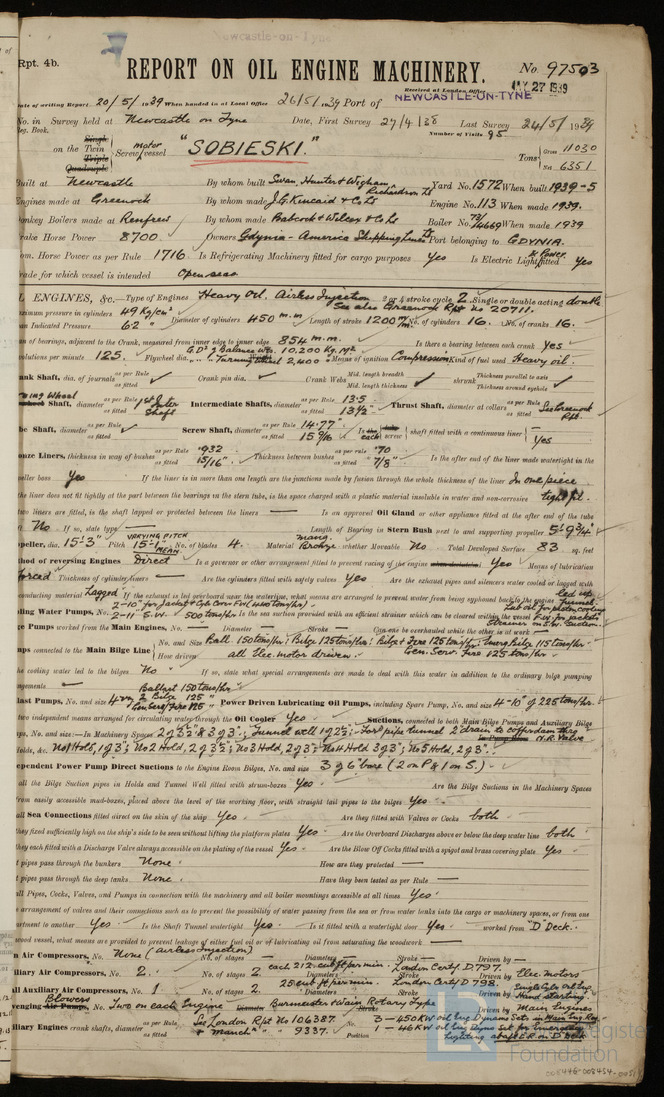 Newcastle-on-Tyne
Rpt. 4b.
REPORT ON OIL ENGINE MACHINERY.
No. 97503
Received at London Office
MAY 27 1939
Date of writing Report 20/5/1939 When handed in at Local Office 26/5/1939 Port of NEWCASTLE-ON-TYNE
No. in Survey held at Newcastle on Tyne Date, First Survey 27/4/38 Last Survey 24/5/1939
Reg. Book.
Number of Visits 95
Single
on the Twin
Triple
Quadruple
Screw motor vessel "SOBIESKI."
Tons Gross 11030
Net 6351
Built at Newcastle By whom built Swan, Hunter & Wigham Richardson Ld Yard No. 1572 When built 1939-5
Engines made at Greenock By whom made J.G. Kincaid & Co Ld Engine No. 113 When made 1939.
Donkey Boilers made at Renfrew By whom made Babcock & Wilcox & Co Ld Boiler No. 73/4669 When made 1939
Brake Horse Power 8700 Owners Gdynia-America Shipping Lines Ld Port belonging to GDYNIA.
Nom. Horse Power as per Rule 1716 Is Refrigerating Machinery fitted for cargo purposes Yes Is Electric Light & Power fitted Yes
Trade for which vessel is intended Open seas
OIL ENGINES, &c.—Type of Engines Heavy Oil. Airless Injection 2 or 4 stroke cycle 2 Single or double acting double
See also Greenock Rpt no 20711.
Maximum pressure in cylinders 49 Kg/cm² Diameter of cylinders 450 m.m. Length of stroke 1200 m/m No. of cylinders 16. No. of cranks 16.
Mean Indicated Pressure 62
Span of bearings, adjacent to the Crank, measured from inner edge to inner edge 854 m.m. Is there a bearing between each crank Yes
Revolutions per minute 125. Flywheel dia. G.D² of Balance Wts. 10,200 Kg.M² Means of ignition Compression Kind of fuel used Heavy oil.
" " Turning Wheel 2,400
Crank Shaft, dia. of journals as per Rule as fitted Crank pin dia. Crank Webs Mid. length breadth Mid. length thickness shrunk Thickness parallel to axis Thickness around eyehole
Turning Wheel Shaft, diameter as per Rule as fitted 1st Inter Shaft Intermediate Shafts, diameter as per Rule 13.5 as fitted 13½" Thrust Shaft, diameter at collars as per Rule as fitted See Greenock Rpt.
Tube Shaft, diameter as per Rule as fitted Screw Shaft, diameter as per Rule 14.77 as fitted 15 3/16 Is the each screw shaft fitted with a continuous liner Yes
Bronze Liners, thickness in way of bushes as per Rule .932 as fitted 15/16" Thickness between bushes as per rule .70 as fitted 7/8" Is the after end of the liner made watertight in the
propeller boss Yes If the liner is in more than one length are the junctions made by fusion through the whole thickness of the liner In one piece
If the liner does not fit tightly at the part between the bearings in the stern tube, is the space charged with a plastic material insoluble in water and non-corrosive tight fit.
If two liners are fitted, is the shaft lapped or protected between the liners — Is an approved Oil Gland or other appliance fitted at the after end of the tube
No If so, state type — Length of Bearing in Stern Bush next to and supporting propeller 5'-9¾"
Propeller, dia. 15'-3" Pitch VARYING PITCH 15'-1" MEAN No. of blades 4. Material Mang. Bronze whether Moveable No Total Developed Surface 83 sq. feet
Method of reversing Engines Direct Is a governor or other arrangement fitted to prevent racing of the engine Yes Means of lubrication
Forced Thickness of cylinder liners — Are the cylinders fitted with safety valves Yes Are the exhaust pipes and silencers water cooled or lagged with
non-conducting material Lagged If the exhaust is led overboard near the waterline, what means are arranged to prevent water from being syphoned back to the engine led up funnel
Cooling Water Pumps, No. 2-10" for Jacket & Cyls Conn F.W. (440 tons/hr) 2-11" S.W. 500 tons/hr Is the sea suction provided with an efficient strainer which can be cleared within the vessel Lub oil for piston cooling F.W. for jackets Strainer in S.W. suction
Bilge Pumps worked from the Main Engines, No. — Diameter — Stroke — Can one be overhauled while the other is at work —
Pumps connected to the Main Bilge Line No. and Size Ball. 150 tons/hr; Bilge 125 tons/hr; Bilge & Fire 125 tons/hr; Emerg. Bilge 115 tons/hr
How driven all Elec. motor driven. Gen. Serv. Fire 125 tons/hr
Is the cooling water led to the bilges No If so, state what special arrangements are made to deal with this water in addition to the ordinary bilge pumping
arrangements —
Ballast Pumps, No. and size Ballast 150 tons/hr 2 Bilge 125 " Gen Serv/Fire 125 " Power Driven Lubricating Oil Pumps, including Spare Pump, No. and size 4-10" of 225 tons/hr.
Are two independent means arranged for circulating water through the Oil Cooler Yes Suctions, connected to both Main Bilge Pumps and Auxiliary Bilge
Pumps, No. and size:—In Machinery Spaces 2 of 3½" & 3 of 3"; Tunnel well 1 of 2½"; Ford pipe tunnel 2" drain to cofferdam thro N.R. Valve
Holds, &c. No1 Hold, 1 of 3"; No 2 Hold, 2 of 3½"; No 3 Hold, 2 of 3"; No 4 Hold 3 of 3"; No 5 Hold, 2 of 3".
Independent Power Pump Direct Suctions to the Engine Room Bilges, No. and size 3 of 6" bore (2 on P & 1 on S.)
Are all the Bilge Suction pipes in Holds and Tunnel Well fitted with strum-boxes Yes Are the Bilge Suctions in the Machinery Spaces
from easily accessible mud-boxes, placed above the level of the working floor, with straight tail pipes to the bilges Yes
Are all Sea Connections fitted direct on the skin of the ship Yes Are they fitted with Valves or Cocks both
Are they fixed sufficiently high on the ship's side to be seen without lifting the platform plates Yes Are the Overboard Discharges above or below the deep water line both
Are they each fitted with a Discharge Valve always accessible on the plating of the vessel Yes Are the Blow Off Cocks fitted with a spigot and brass covering plate Yes
What pipes pass through the bunkers None How are they protected —
What pipes pass through the deep tanks None Have they been tested as per Rule —
Are all Pipes, Cocks, Valves, and Pumps in connection with the machinery and all boiler mountings accessible at all times Yes
Is the arrangement of valves and their connections such as to prevent the possibility of water passing from the sea or from water tanks into the cargo or machinery spaces, or from one
compartment to another Yes Is the Shaft Tunnel watertight Yes Is it fitted with a watertight door Yes worked from "D" Deck.
If a wood vessel, what means are provided to prevent leakage of either fuel oil or of lubricating oil from saturating the woodwork —
Main Air Compressors, No. None (airless Injection) No. of stages — Diameters — Stroke — Driven by —
Auxiliary Air Compressors, No. 2. No. of stages 2 each 212 cub ft per min. Diameters London Certf. D.797. Stroke Driven by Elec. motors
Small Auxiliary Air Compressors, No. 1 No. of stages 2 25 cub ft per min. Diameters London Certf D 798. Stroke Driven by Single Cyl. Oil Eng. Hand starting
Scavenging Air Pumps, Blowers No. Two on each Engine Diameter Burmeister & Wain Rotary Type Stroke Driven by Main Engines
Auxiliary Engines crank shafts, diameter as per Rule See London Rpt No 106387 3-450 KW oil Eng Dynamo Sets in Main Eng. Rm.
as fitted " March " " 9337. Position 1-46 KW oil Eng Dyno Set for Emergency Lighting
Lloyd's Register
Foundation
008446-008454-0051